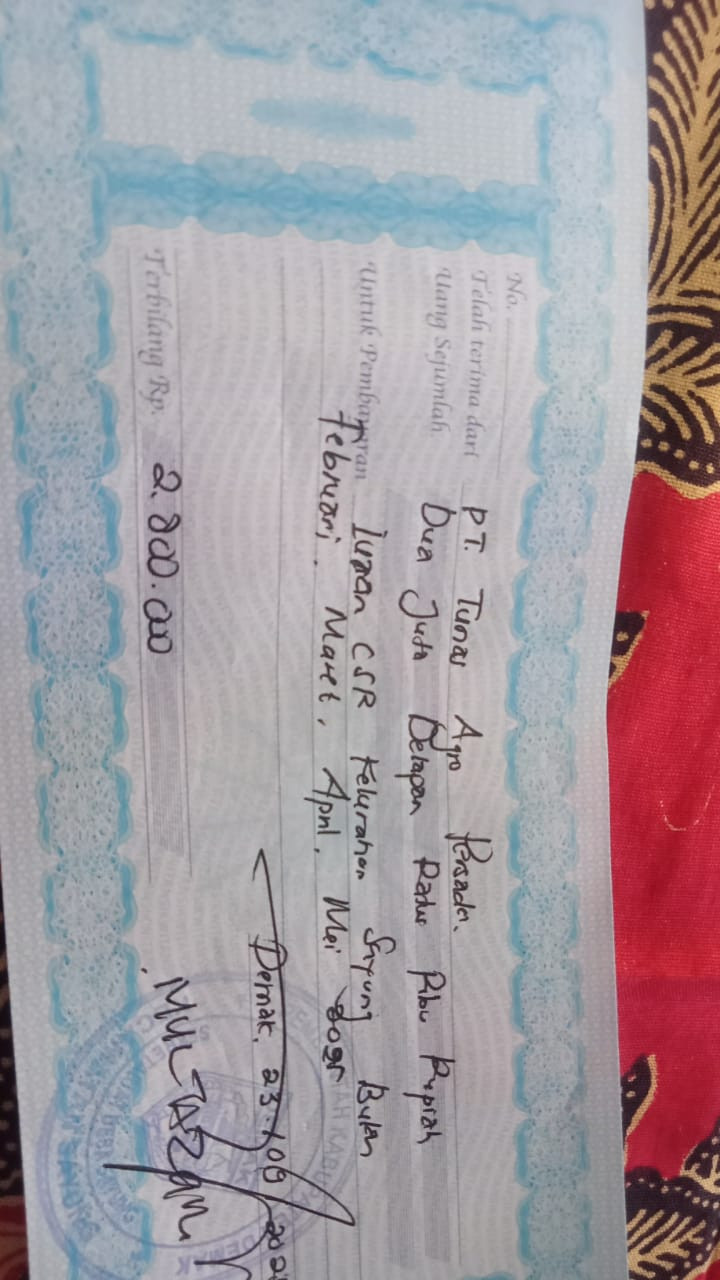 No.
Telah terima dari PT. Tunas Agro Persada.
Uang Sejumlah Dua Juta Delapan Ratus Ribu Rupiah
Untuk Pembayaran Iuran CSR Kelurahan Sayung Bulan
Februari, Maret, April, Mei
Demak, 23
Terbilang Rp. 2.800.000